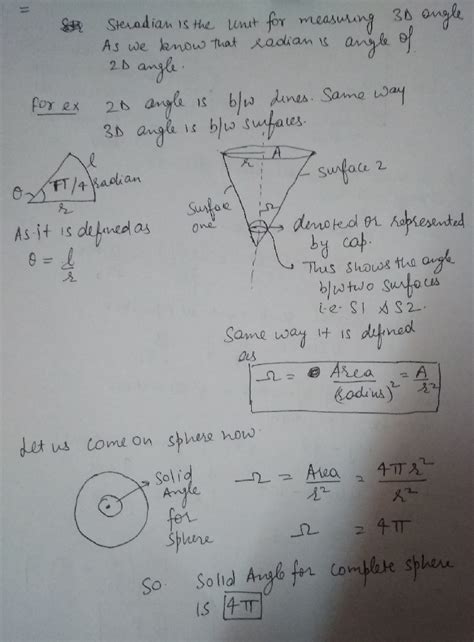 =
Steradian is the unit for measuring 3D angle
As we know that radian is angle of
2D angle.
For ex 2D angle is b/w lines. Same way
3D angle is b/w surfaces.
θ π/4 radian l
r
As it is defined as
θ = l/r
r A
Surface one
surface 2
Ω
denoted or represented
by cap.
This shows the angle
b/w two surfaces
i.e. S1 & S2.
Same way it is defined
as
Ω = Area/(radius)² = A/r²
Let us come on sphere now.
Solid
Angle
for
Sphere
Ω = Area/r² = 4πr²/r²
Ω = 4π
So Solid Angle for complete sphere
is 4π